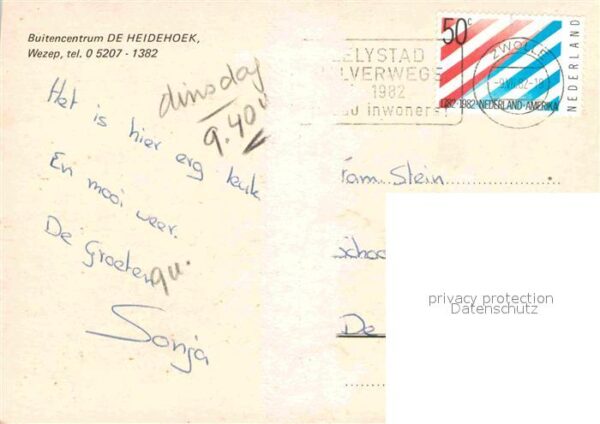 Buitencentrum DE HEIDEHOEK,
Wezep, tel. 0 5207 - 1382
dinsdag
9.40u
Het is hier erg leuk
En mooi weer.
De Groeten
Sonja
LELYSTAD
ZILVERWEGS
1982
inwoners!
50c
ZWOLLE
NEDERLAND
1782-1982 NEDERLAND-AMERIKA
Fam. Stein
De
privacy protection
Datenschutz